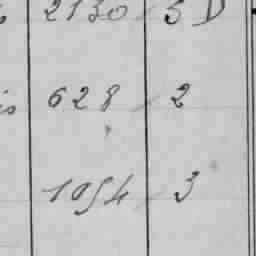 2130 5 D
is 628 2
1054 3